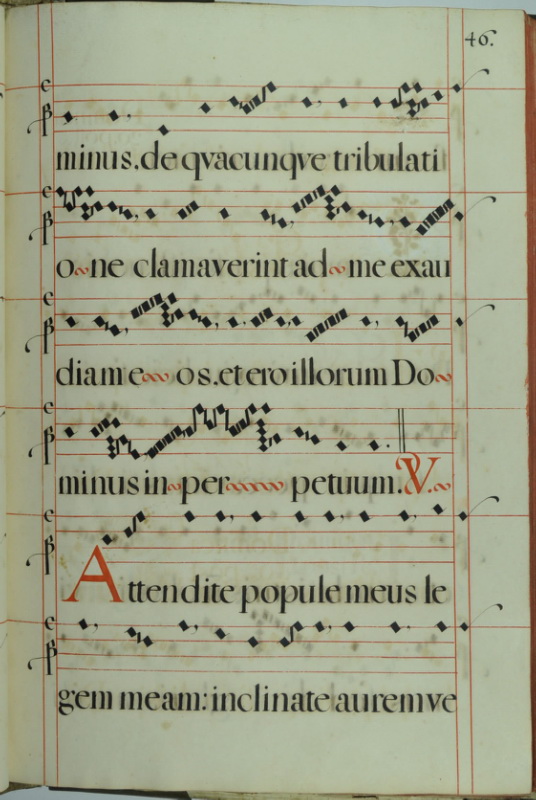 46.
minus. de qvacunqve tribulati
o~ne clamaverint ad~me exau
diam e~~os. et ero illorum Do~
minus in~per~~~~petuum. V.~
Attendite popule meus le
gem meam: inclinate aurem ve